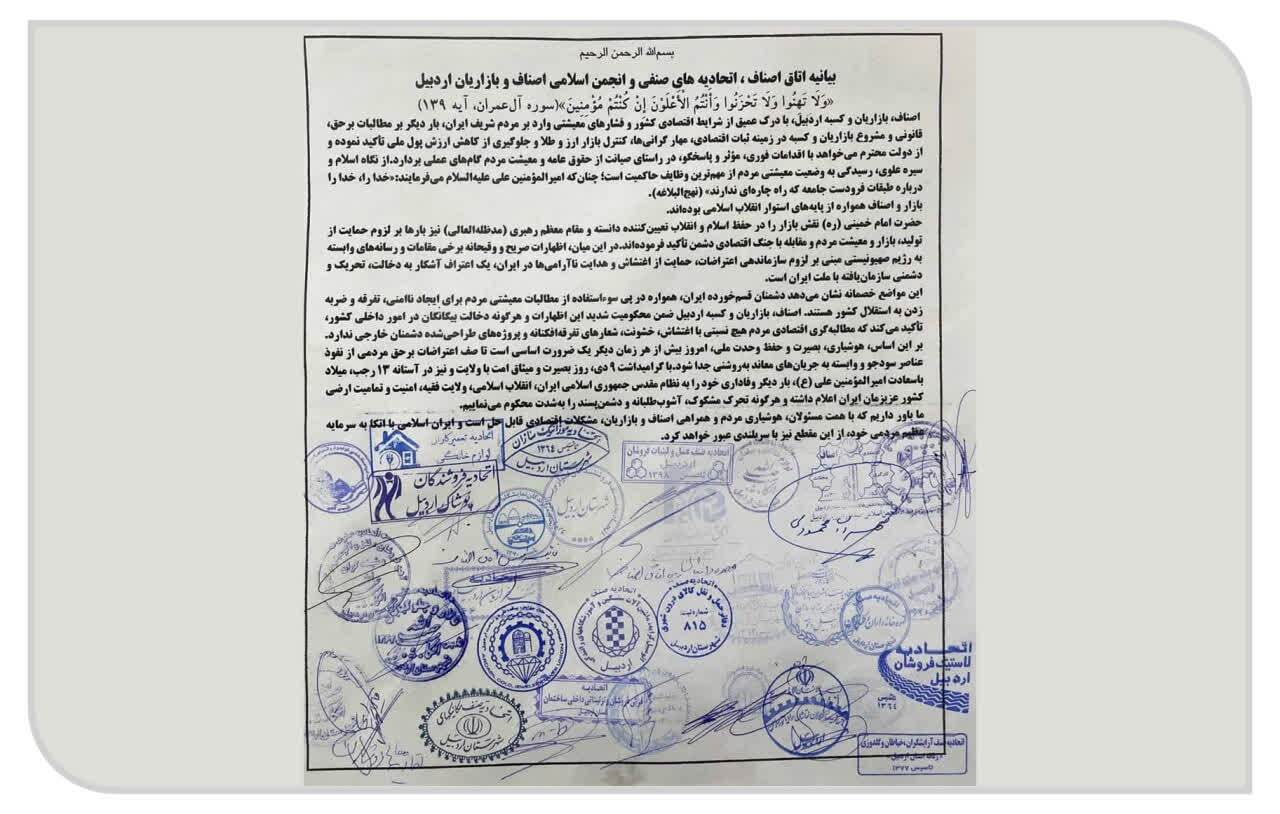 بسم‌الله الرحمن الرحیم
بیانیه اتاق اصناف ، اتحادیه های صنفی و انجمن اسلامی اصناف و بازاریان اردبیل
«وَلَا تَهِنُوا وَلَا تَحْزَنُوا وَأَنْتُمُ الْأَعْلَوْنَ إِنْ كُنْتُمْ مُؤْمِنِينَ»(سوره آل‌عمران، آیه ۱۳۹)
اصناف، بازاریان و کسبه اردبیل، با درک عمیق از شرایط اقتصادی کشور و فشارهای معیشتی وارد بر مردم شریف ایران، بار دیگر بر مطالبات برحق،
قانونی و مشروع بازاریان و کسبه در زمینه ثبات اقتصادی، مهار گرانی‌ها، کنترل بازار ارز و طلا و جلوگیری از کاهش ارزش پول ملی تأکید نموده و
از دولت محترم می‌خواهد با اقدامات فوری، مؤثر و پاسخگو، در راستای صیانت از حقوق عامه و معیشت مردم گام‌های عملی بردارد.از نگاه اسلام و
سیره علوی، رسیدگی به وضعیت معیشتی مردم از مهم‌ترین وظایف حاکمیت است؛ چنان‌که امیرالمؤمنین علی علیه‌السلام می‌فرمایند:«خدا را، خدا را
درباره طبقات فرودست جامعه که راه چاره‌ای ندارند» (نهج‌البلاغه).
بازار و اصناف همواره از پایه‌های استوار انقلاب اسلامی بوده‌اند.
حضرت امام خمینی (ره) نقش بازار را در حفظ اسلام و انقلاب تعیین‌کننده دانسته و مقام معظم رهبری (مدظله‌العالی) نیز بارها بر لزوم حمایت از
تولید، بازار و معیشت مردم و مقابله با جنگ اقتصادی دشمن تأکید فرموده‌اند.در این میان، اظهارات صریح و وقیحانه برخی مقامات و رسانه‌های وابسته
به رژیم صهیونیستی مبنی بر لزوم سازماندهی اعتراضات، حمایت از اغتشاش و هدایت ناآرامی‌ها در ایران، یک اعتراف آشکار به دخالت، تحریک و
دشمنی سازمان‌یافته با ملت ایران است.
این مواضع خصمانه نشان می‌دهد دشمنان قسم‌خورده ایران، همواره در پی سوءاستفاده از مطالبات معیشتی مردم برای ایجاد ناامنی، تفرقه و ضربه
زدن به استقلال کشور هستند. اصناف، بازاریان و کسبه اردبیل ضمن محکومیت شدید این اظهارات و هرگونه دخالت بیگانگان در امور داخلی کشور،
تأکید می‌کند که مطالبه‌گری اقتصادی مردم هیچ نسبتی با اغتشاش، خشونت، شعارهای تفرقه‌افکنانه و پروژه‌های طراحی‌شده دشمنان خارجی ندارد.
بر این اساس، هوشیاری، بصیرت و حفظ وحدت ملی، امروز بیش از هر زمان دیگر یک ضرورت اساسی است تا صف اعتراضات برحق مردمی از نفوذ
عناصر سودجو و وابسته به جریان‌های معاند به‌روشنی جدا شود.با گرامیداشت ۹ دی، روز بصیرت و میثاق امت با ولایت و نیز در آستانه ۱۳ رجب، میلاد
باسعادت امیرالمؤمنین علی (ع)، بار دیگر وفاداری خود را به نظام مقدس جمهوری اسلامی ایران، انقلاب اسلامی، ولایت فقیه، امنیت و تمامیت ارضی
کشور عزیزمان ایران اعلام داشته و هرگونه تحرک مشکوک، آشوب‌طلبانه و دشمن‌پسند را به‌شدت محکوم می‌نماییم.
ما باور داریم که با همت مسئولان، هوشیاری مردم و همراهی اصناف و بازاریان، مشکلات اقتصادی قابل حل است و ایران اسلامی با اتکا به سرمایه
عظیم مردمی خود، از این مقطع نیز با سربلندی عبور خواهد کرد.
اتحادیه تعمیرکاران
لوازم خانگی
تاسیس ۱۳۶۴
شهرستان اردبیل
اتحادیه صنف عسل و لبنیات فروشان
اردبیل
تاسیس ۱۳۹۸
اتحادیه فروشندگان
پوشاک اردبیل
شهرستان اردبیل
اتحادیه صنف
دفاتر حمل و نقل کالای درون شهری
شماره ثبت
۸۱۵
شهرستان اردبیل
اتحادیه صنف
اردبیل
اتحادیه صنف
اتحادیه
لاستیک فروشان
اردبیل
تاسیس
۱۳۶۴
اتحادیه
داخلی ساختمان
شهرستان اردبیل
اتحادیه صنف آرایشگران، خیاطان و گلدوزی
زنانه استان اردبیل
تاسیس ۱۳۷۷